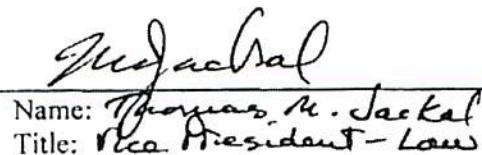 TMJackal
Name: Thomas M. Jackal
Title: Vice President - Law